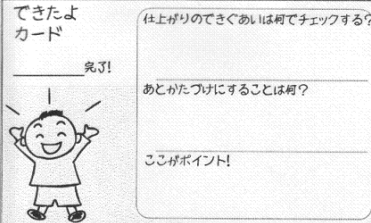 できたよ
カード
完了!
仕上がりのできぐあいは何でチェックする?
あとかたづけにすることは何?
ここがポイント!